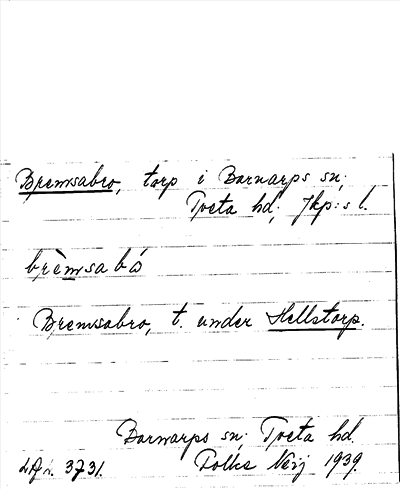 Bremsabro, torp i Barnarps sn;
Tveta hd; Jkp:s l.
brèmsabó
Bremsabro, t. under Hellstorp.
Barnarps sn; Tveta hd.
3731. Folke Neij 1939.